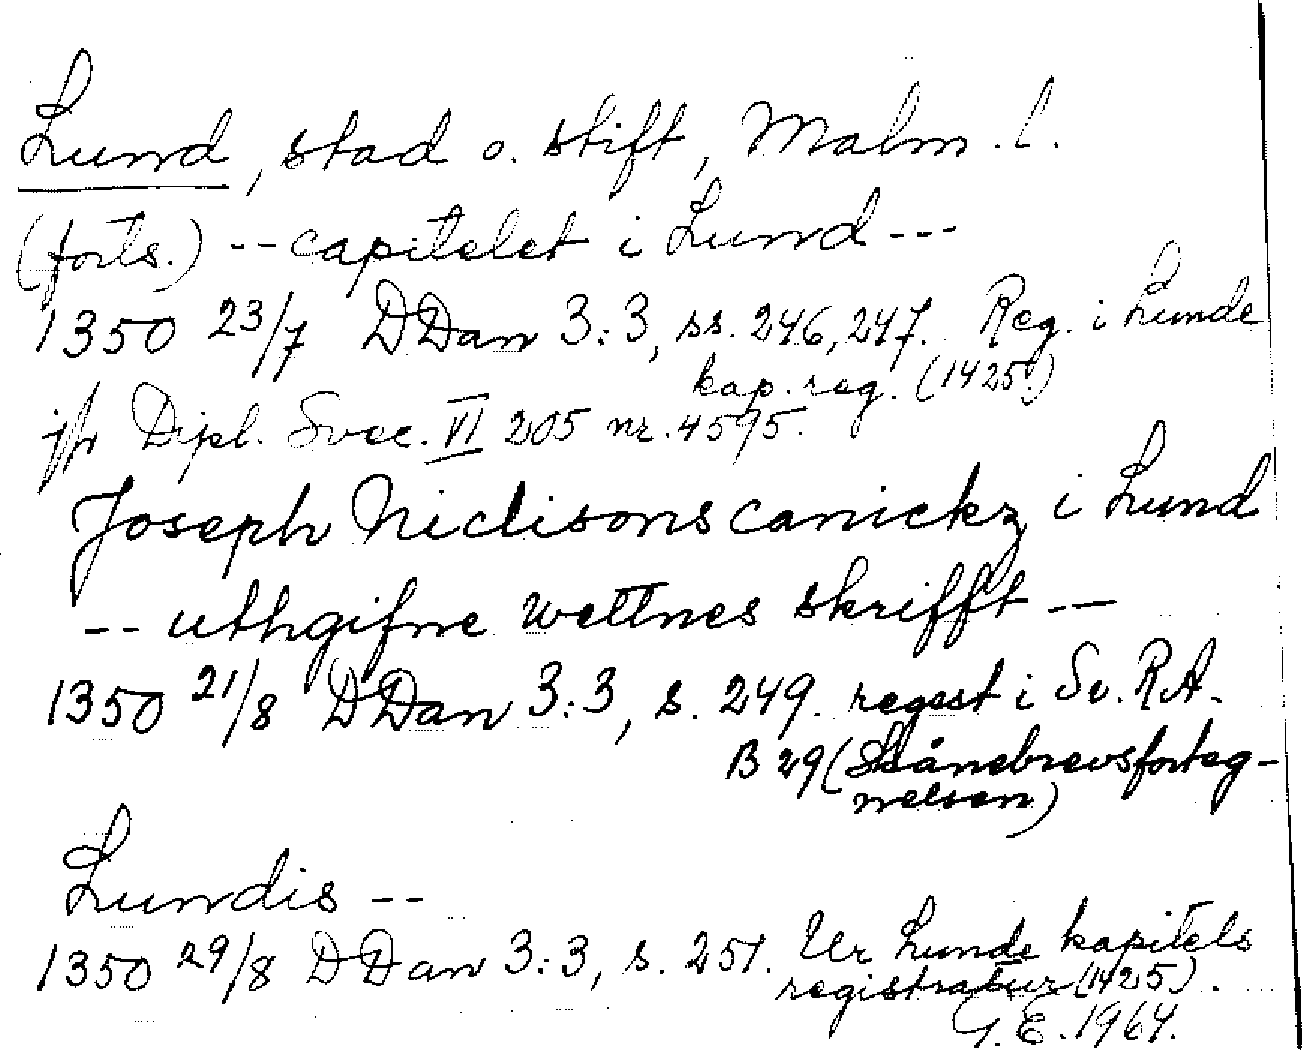 Lund, stad o. stift, Malm. l.
(forts.) -- capitelet i Lund ---
1350 23/7 DDan 3:3, ss. 246, 247. Reg. i Lunde
kap. reg. (1425.)
jfr Dipl. Svec. VI 205 nr. 4595.
Joseph Niclisons canickz i Lund
-- uthgifne wettnes skrifft --
1350 21/8 DDan 3:3, s. 249. regest i Sv. RA.
B 29 (Skånebrevsforteg-
nelsen)
Lundis --
1350 29/8 DDan 3:3, s. 251. Ur Lunde kapitels
registratur (1425).
G. E. 1964.